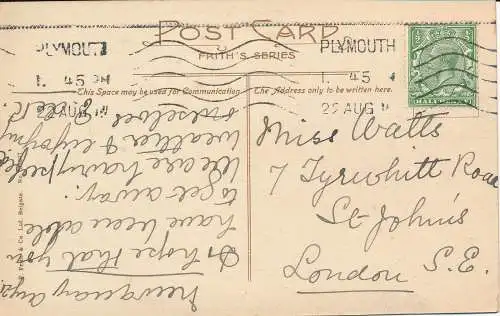 POST CARD
FRITH'S SERIES
PLYMOUTH
1. 45 PM
22 AUG
PLYMOUTH
1. 45
22 AUG
HALFPENNY
This Space may be used for Communication
The address only to be written here.
Newquay Aug
I hope that you
have been able
to get away.
We are having
weather & enjoying
ourselves
Miss Watts
7 Tyrwhitt Road
St John's
London S.E.
F. Frith & Co. Ltd. Reigate.